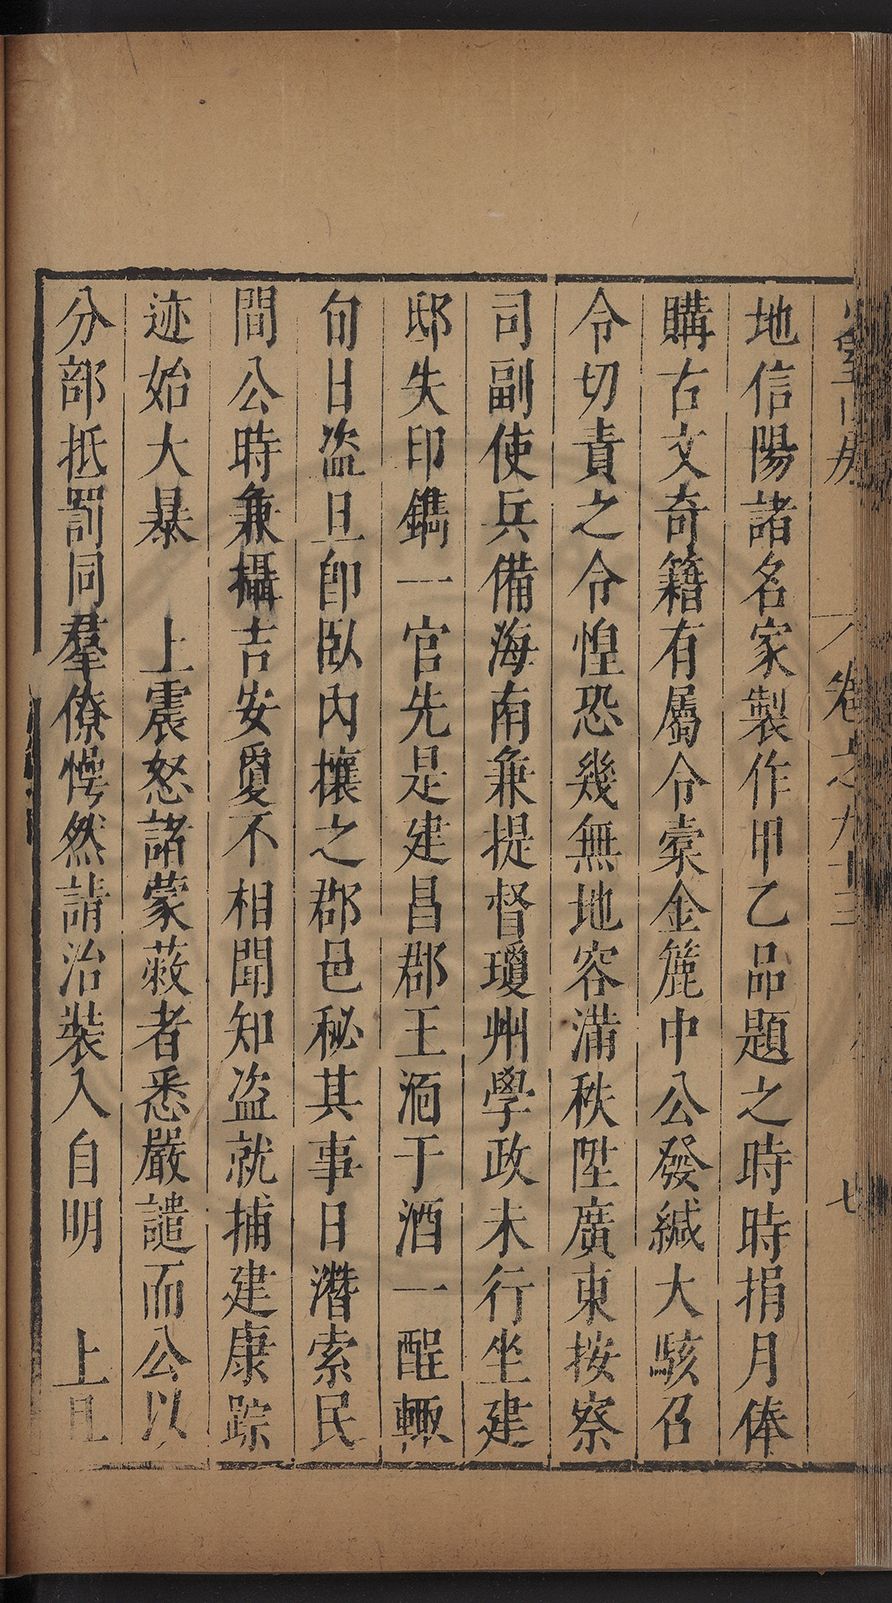 卷之九十三
七
地信陽諸名家製作甲乙品題之時時捐月俸
購古文奇籍有屬令橐金簏中公發緘大駭召
令切責之令惶恐幾無地容滿秩陞廣東按察
司副使兵備海南兼提督瓊州學政未行坐建
邸失印鐫一官先是建昌郡王湎于酒一酲輙
旬日盜且卽臥內攘之郡邑秘其事日潛索民
間公時兼攝吉安敻不相聞知盜就捕建康踪
迹始大暴　上震怒諸蒙蔽者悉嚴譴而公以
分部抵罰同羣僚愕然請治裝入自明　上且